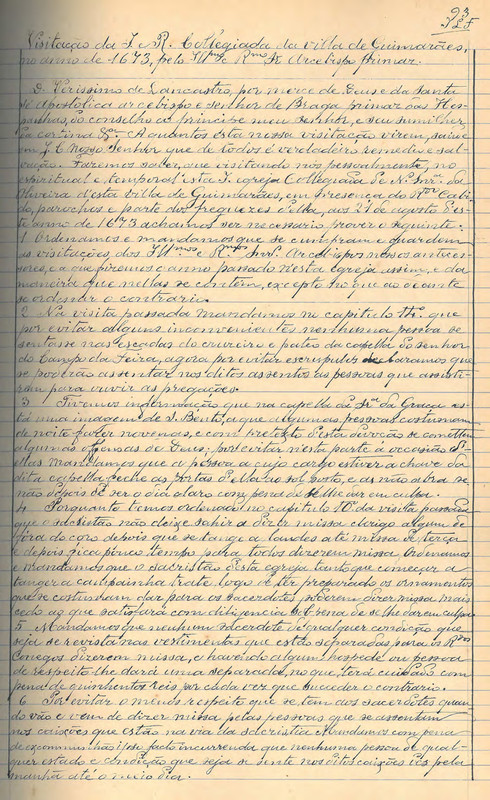 93
Visitação da I. e R. Collegiada da villa de Guimarães,
no anno de 1673, pelo Ill.mo R.mo Sr. Arcebispo primaz.
D. Verissimo de Lancastro, por merce de Deus e da santa
sé apostolica arcebispo e senhor de Braga primaz das Hes-
panhas, do conselho do principe meu senhor, e seu sumilher
da cortina &.a A quantos esta nossa visitação virem, saude
em J. C. Nosso Senhor que de todos é verdadeiro remedio e sal-
vação. Fazemos saber, que visitando nós pessoalmente, no
espiritual e temporal esta I. egreja Collegiada de N.a Snr.a da
Oliveira d'esta villa de Guimarães, em presença do R.do Cabi-
do, parochos e parte dos freguezes d'ella, aos 27 de agosto d'es-
te anno de 1673 achamos ser necessario prover o seguinte:
1 Ordenamos e mandamos que se cumpram e guardem
as visitações, dos Ill.mos e R.mos Snrs. Arcebispos nossos anteces-
sores, e a que fizemos o anno passado n'esta egreja assim, e da
maneira que nellas se contém, excepto no que ao deante
se ordenar o contrario.
2 Na visita passada mandamos no capitulo 7.º que
por evitar alguns inconvenientes nenhuma pessoa se
sentasse nas escadas do cruzeiro e pateo da capella do senhor
do Campo da Feira, agora por evitar escrupulos declaramos que
se poderão assentar nos ditos assentos as pessoas que assisti-
rem para ouvir as pregações.
3 Tivemos informação que na capella da Sr.a da Graça es-
tá uma imagem de S. Bento, a que algumas pessoas costumam
de noite fazer novenas, e com pretexto d'esta devoção se comettem
algumas offensas de Deus; por evitar nesta parte a occasião d'-
ellas mandamos que a pessoa a cujo cargo estiver a chave da
dita capella feche as portas d'ella ao sol posto, e as não abra se
não depois de ser o dia claro com pena de se lhe dar em culpa.
4 Porquanto temos ordenado no capitulo 10 da visita passada
que o sacristão não deixe sahir a dizer missa clerigo algum de
fóra do coro depois que se tange a laudes até missa de terça
e depois fica pouco tempo para todos dizerem missa, Ordenamos
e mandamos que o sacristão d'esta egreja tanto que começar a
tanger a campainha trate logo de ter preparado os ornamentos
que se costumam dar para os sacerdotes poderem dizer missa mais
cedo ao que satisfará com diligencia sob pena de se lhe dar em culpa
5 Mandamos que nenhum sacerdote de qualquer condição que
seja se revista nas vestimentas que estão separadas para os R.dos
Conegos dizerem missa, e havendo algum hospede ou pessoa
de respeito lhe dará uma separada, no que, terá cuidado com
pena de quinhentos reis por cada vez que succeder o contrario.
6 Por evitar o menos respeito que se tem aos sacerdotes quan-
do vão e vem de dizer missa pelas pessoas que se assentam
nos caixões que estão na via da sacristia Mandamos com pena
de excommunhão ipso facto incurrenda que nenhuma pessoa de qual-
quer estado e condição que seja se sente nos ditos caixões des pela
manhã até o meio dia.